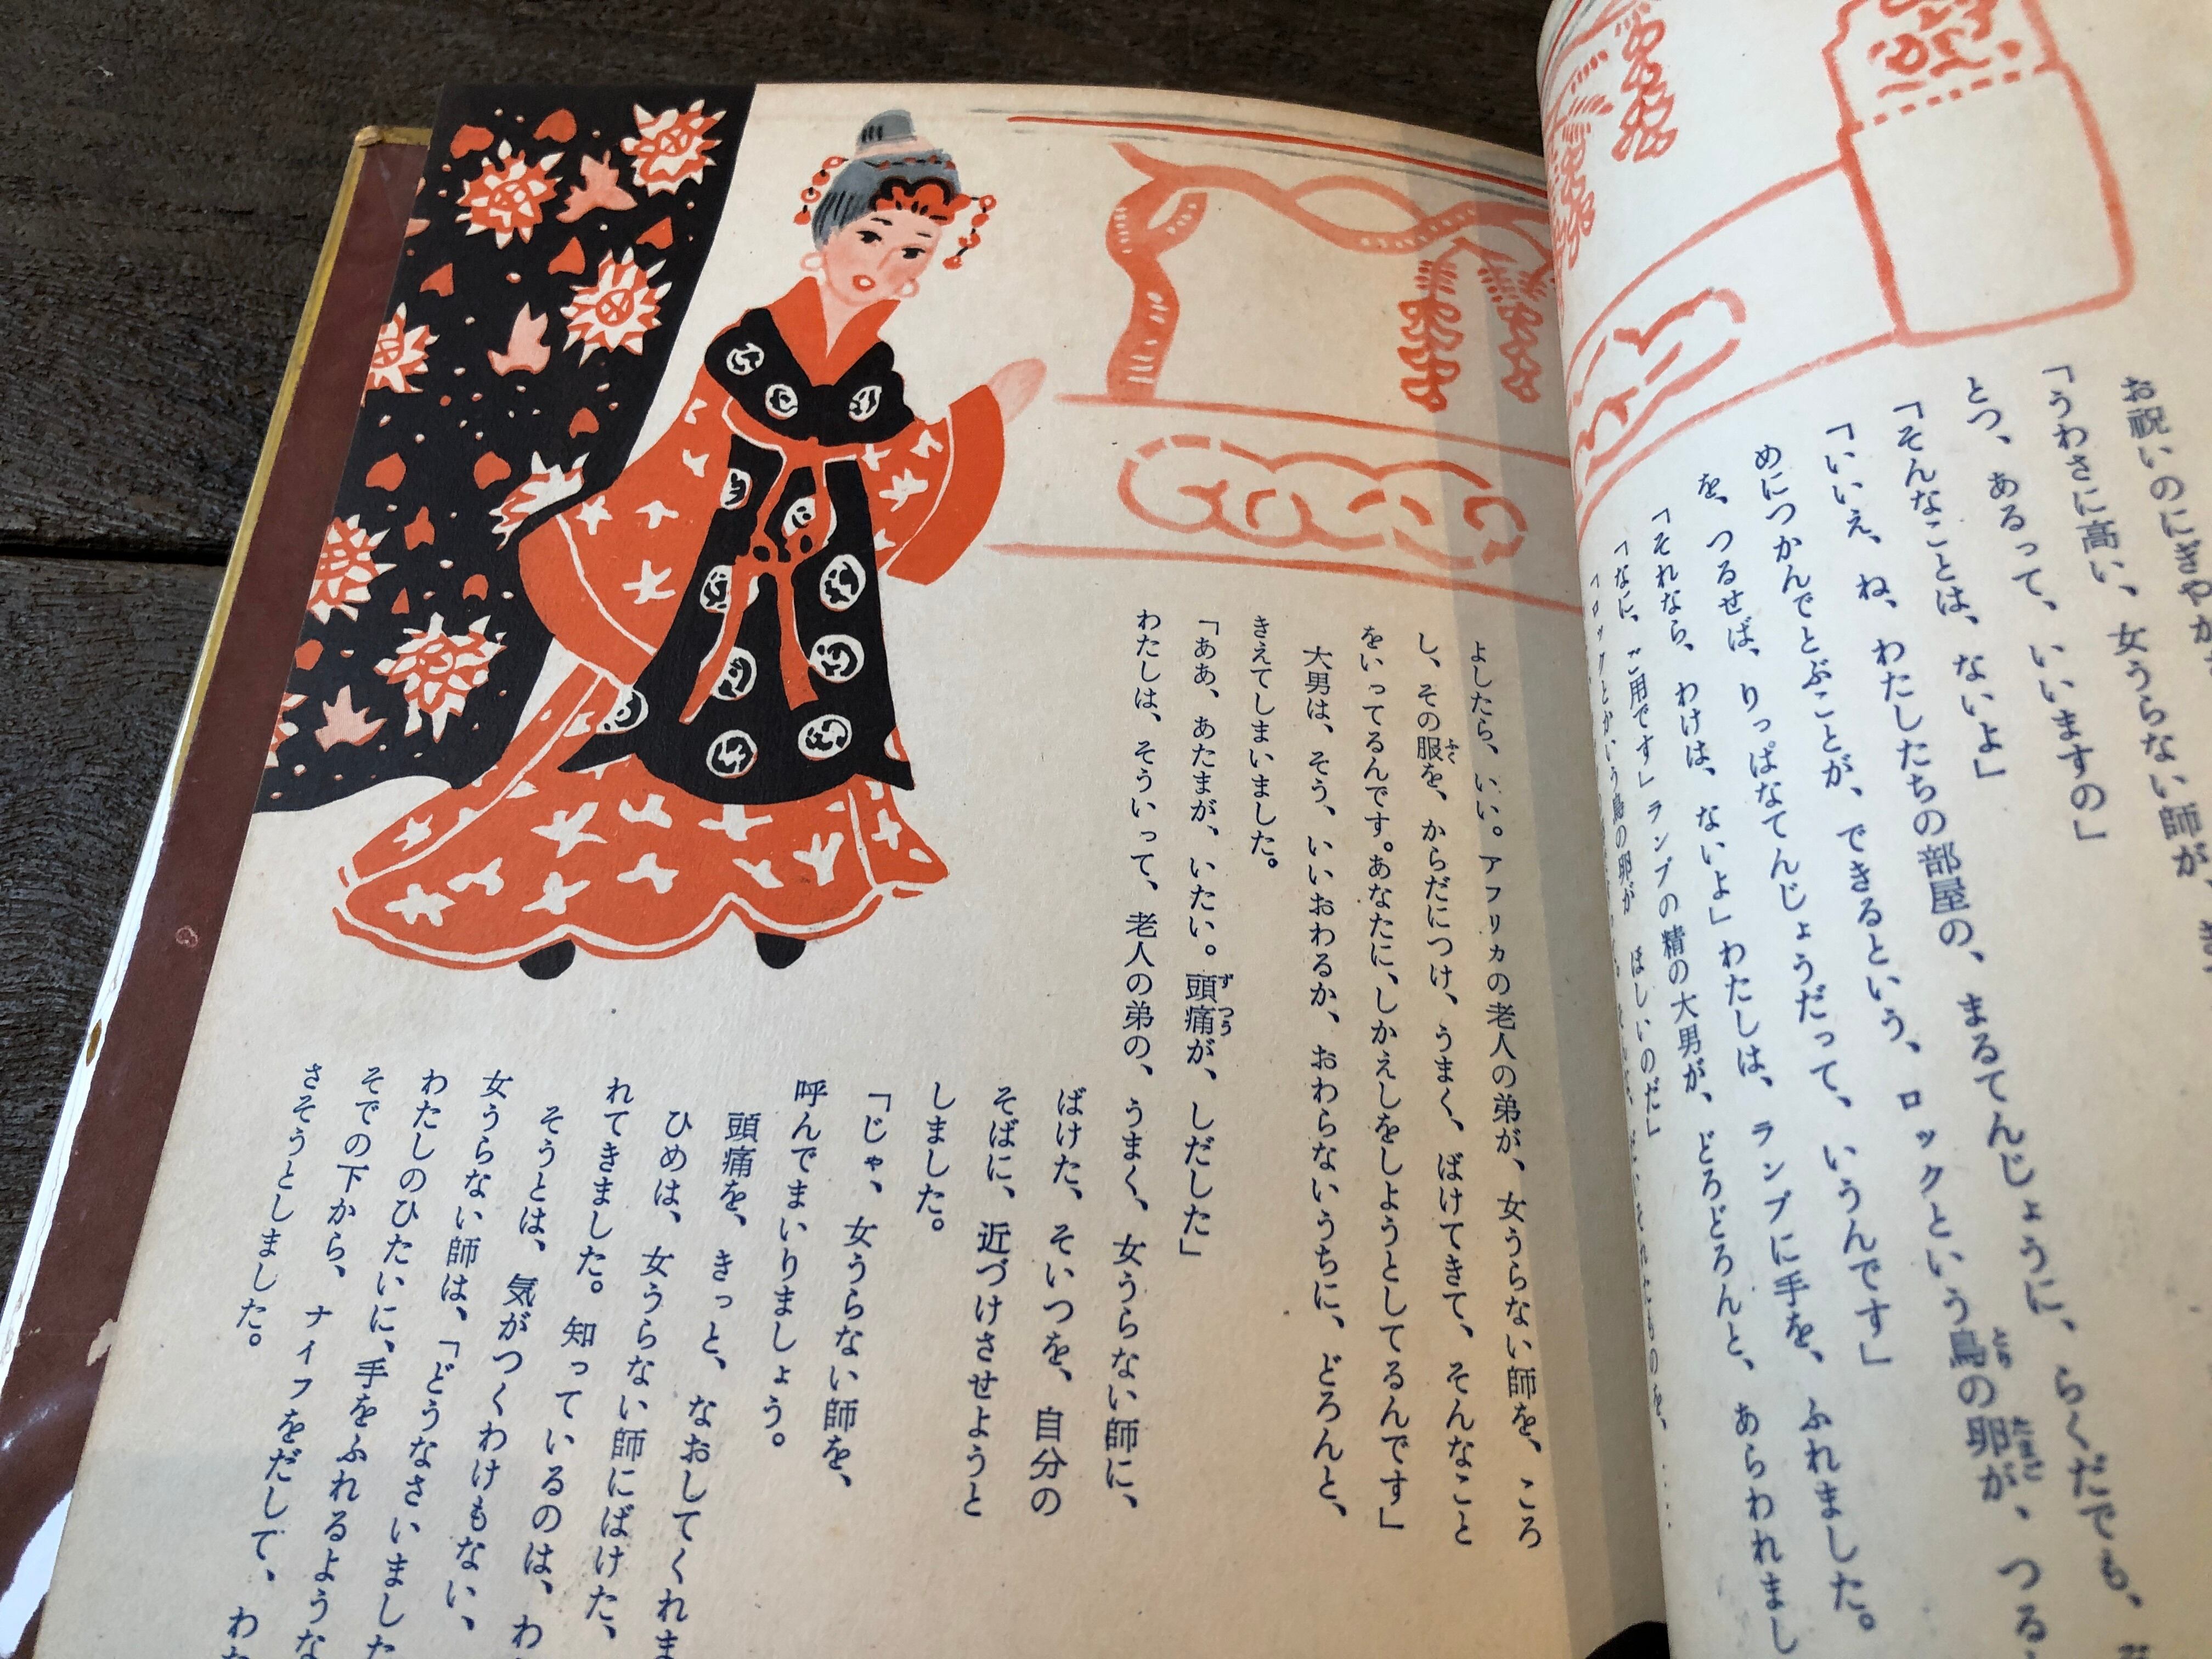 お祝いのにぎやか
「うわさに高い、女うらない師が、
とつ、あるって、いいますの」
「そんなことは、ないよ」
「いいえ、ね、わたしたちの部屋の、まるてんじょうに、らくだでも、
めにつかんでとぶことが、できるという、ロックという鳥の卵が、つる
を、つるせば、りっぱなてんじょうだって、いうんです」
「それなら、わけは、ないよ」わたしは、ランプに手を、ふれました。
「なに、ご用です」ランプの精の大男が、どろどろんと、あらわれまし
「ロックとかいう鳥の卵が ほしいのだ」
よしたら、いい。アフリカの老人の弟が、女うらない師を、ころ
し、その服を、からだにつけ、うまく、ばけてきて、そんなこと
をいってるんです。あなたに、しかえしをしようとしてるんです」
大男は、そう、いいおわるか、おわらないうちに、どろんと、
きえてしまいました。
「ああ、あたまが、いたい。頭痛が、しだした」
わたしは、そういって、老人の弟の、うまく、女うらない師に、
ばけた、そいつを、自分の
そばに、近づけさせようと
しました。
「じゃ、女うらない師を、
呼んでまいりましょう。
頭痛を、きっと、なおしてくれま
ひめは、女うらない師にばけた、
れてきました。知っているのは、わ
そうとは、気がつくわけもない、
女うらない師は、「どうなさいました
わたしのひたいに、手をふれるような
そでの下から、ナイフをだして、わた
さそうとしました。